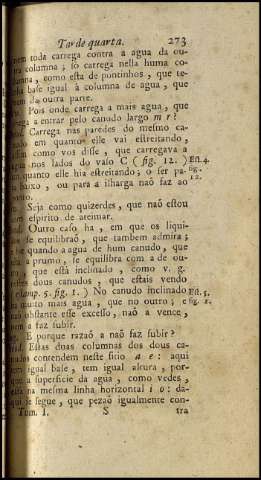 Tarde quarta. 273
nem toda carrega contra a agua da ou-
tra columna; só carrega nella huma co-
lumna, como esta de pontinhos, que te-
nha base igual á columna de agua, que
vem da outra parte.
Pois onde carrega a mais agua, que
chega a entrar pelo canudo largo m r?
Carrega nas paredes do mesmo ca-
nudo, em quanto elle vai estreitando,
assim como vos disse, que carregava a
agua nos lados do vaso C (fig. 12.) Est. 4.
em quanto elle hia estreitando; o ser pa- fig.
ra baixo, ou para a ilharga naõ faz ao 12.
Seja como quizerdes, que naõ estou
com espirito de ateimar.
Outro caso ha, em que os liqui-
dos se equilibraõ, que tambem admira;
e he quando a agua de hum canudo, que
está a prumo, se equilibra com a de ou-
tro, que está inclinado, como v. g.
nestes dous canudos, que estais vendo
(estamp. 5. fig. 1.) No canudo inclinado Est. 5.
ha muito mais agua, que no outro; e fig. 1.
naõ obstante esse excesso, naõ a vence,
nem a faz subir.
E. E porque razaõ a naõ faz subir?
Essas duas columnas dos dous ca-
nudos contendem neste sitio a e: aqui
tem igual base, tem igual altura, por-
que a superficie da agua, como vedes,
está na mesma linha horizontal i o: da-
qui se segue, que pezaõ igualmente con-
Tom. I. S tra